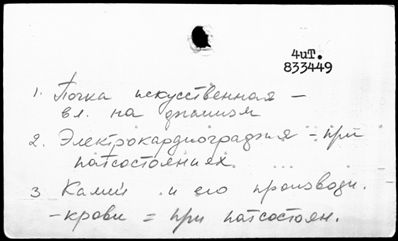 4иТ.
833449
1. Почка искусственная –
вл. на организм
2. Электрокардиография = при
патсостояниях. ...
3 Калий и его производн.
– крови = при патсостоян.